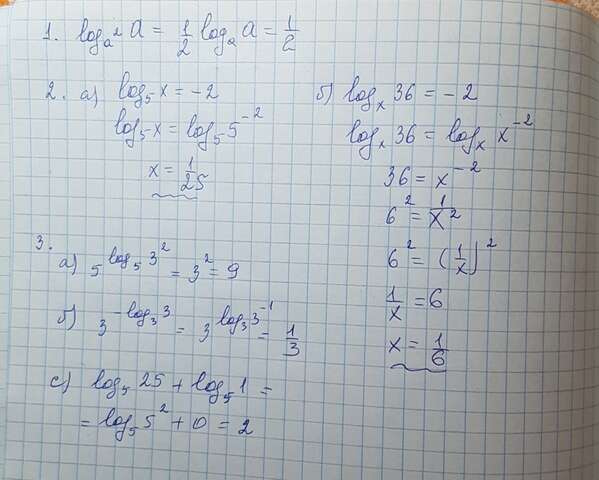 1. logₐ² a = 1/2 logₐ a = 1/2
2. а) log₅ x = -2
log₅ x = log₅ 5⁻²
x = 1/25
б) logₓ 36 = -2
logₓ 36 = logₓ x⁻²
36 = x⁻²
6² = 1/x²
6² = (1/x)²
1/x = 6
x = 1/6
3.
а) 5^(log₅ 3²) = 3² = 9
б) 3^(-log₃ 3) = 3^(log₃ 3⁻¹) = 1/3
с) log₅ 25 + log₅ 1 =
= log₅ 5² + 0 = 2